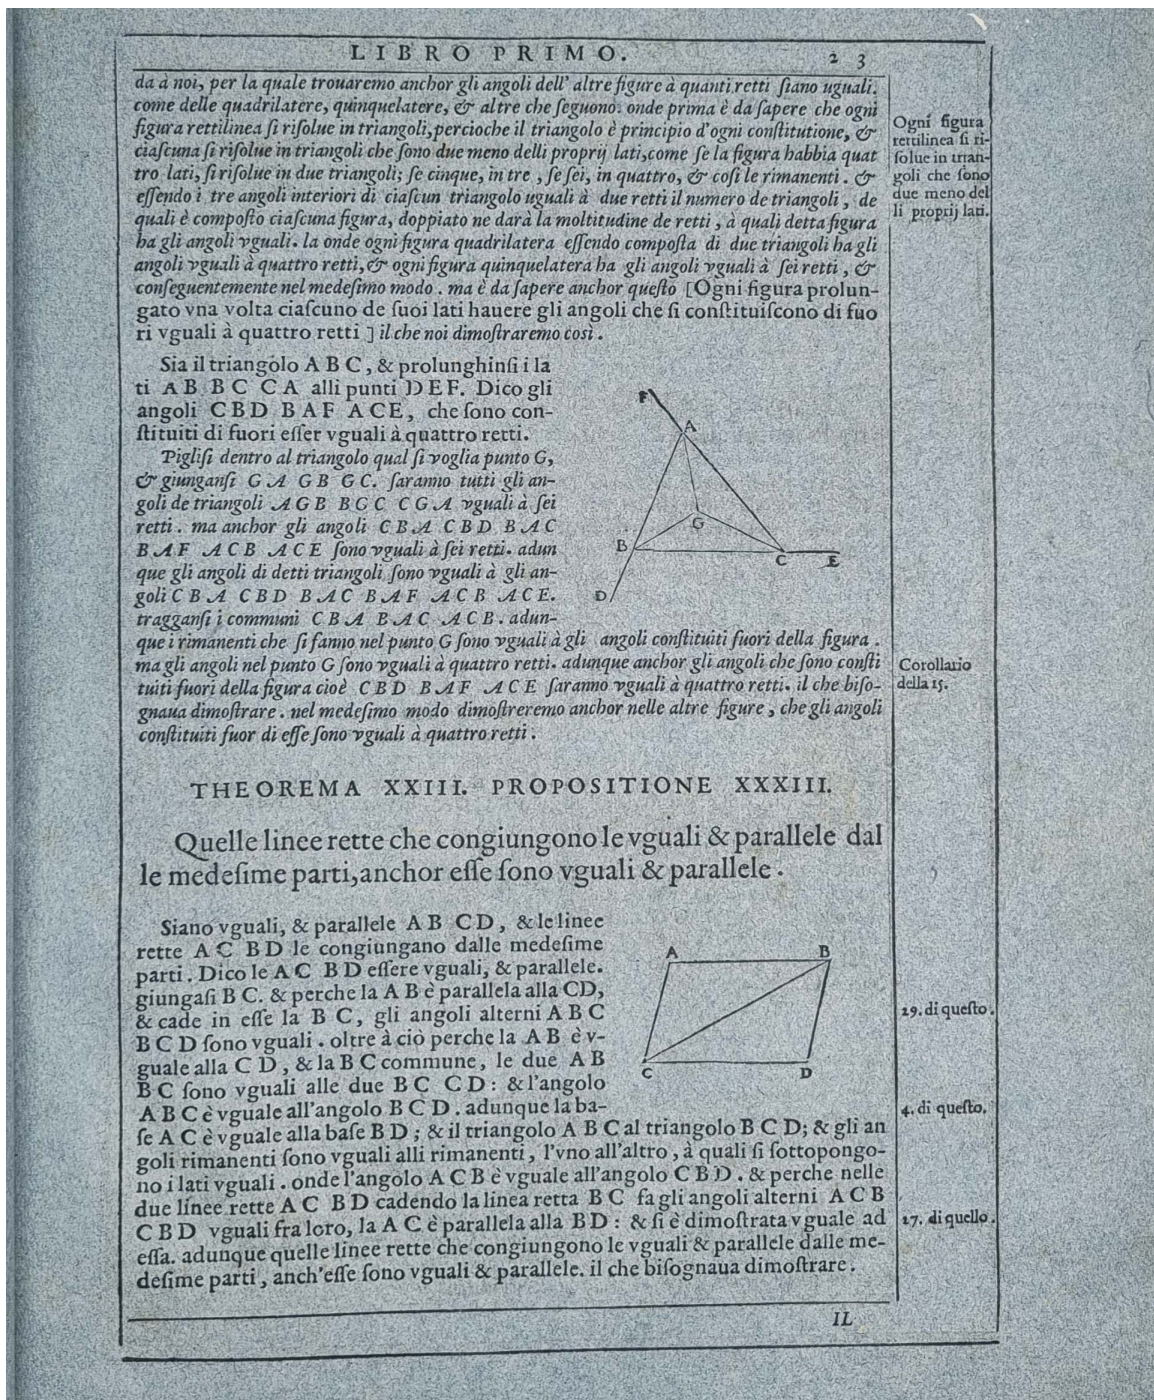 LIBRO PRIMO. 2 3
da à noi, per la quale trouaremo anchor gli angoli dell' altre figure à quanti retti ſiano uguali.
come delle quadrilatere, quinquelatere, & altre che ſeguono. onde prima è da ſapere che ogni
figura rettilinea ſi riſolue in triangoli, percioche il triangolo è principio d'ogni conſtitutione, &
ciaſcuna ſi riſolue in triangoli che ſono due meno delli proprij lati, come ſe la figura habbia quat
tro lati, ſi riſolue in due triangoli; ſe cinque, in tre, ſe ſei, in quattro, & coſi le rimanenti. &
eſſendo i tre angoli interiori di ciaſcun triangolo uguali à due retti il numero de triangoli, de
quali è compoſto ciaſcuna figura, doppiato ne darà la moltitudine de retti, à quali detta figura
ha gli angoli vguali. la onde ogni figura quadrilatera eſſendo compoſta di due triangoli ha gli
angoli vguali à quattro retti, & ogni figura quinquelatera ha gli angoli vguali à ſei retti, &
conſeguentemente nel medeſimo modo. ma è da ſapere anchor queſto [Ogni figura prolun-
gato vna volta ciaſcuno de ſuoi lati hauere gli angoli che ſi conſtituiſcono di fuo
ri vguali à quattro retti] il che noi dimoſtraremo così.
Ogni figura
rettilinea ſi ri-
ſolue in trian-
goli che ſono
due meno del
li proprij lati.
Sia il triangolo A B C, & prolunghinſi i la
ti A B B C C A alli punti D E F. Dico gli
angoli C B D B A F A C E, che ſono con-
ſtituiti di fuori eſſer vguali à quattro retti.
Piglisi dentro al triangolo qual ſi voglia punto G,
& giunganſi G A G B G C. ſaranno tutti gli an-
goli de triangoli A G B B G C C G A vguali à ſei
retti. ma anchor gli angoli C B A C B D B A C
B A F A C B A C E ſono vguali à ſei retti. adun
que gli angoli di detti triangoli ſono vguali à gli an-
goli C B A C B D B A C B A F A C B A C E.
tragganſi i communi C B A B A C A C B. adun-
que i rimanenti che ſi fanno nel punto G ſono vguali à gli angoli conſtituiti fuori della figura.
ma gli angoli nel punto G ſono vguali à quattro retti. adunque anchor gli angoli che ſono conſti
tuiti fuori della figura cioè C B D B A F A C E ſaranno vguali à quattro retti. il che biſo-
gnaua dimoſtrare. nel medeſimo modo dimoſtreremo anchor nelle altre figure, che gli angoli
conſtituiti fuor di eſſe ſono vguali à quattro retti.
F
A
G
B
C
E
D
Corollario
della 15.
THEOREMA XXIII. PROPOSITIONE XXXIII.
Quelle linee rette che congiungono le vguali & parallele dal
le medeſime parti, anchor eſſe ſono vguali & parallele.
Siano vguali, & parallele A B C D, & le linee
rette A C B D le congiungano dalle medeſime
parti. Dico le A C B D eſſere vguali, & parallele.
giungaſi B C. & perche la A B è parallela alla C D,
& cade in eſſe la B C, gli angoli alterni A B C
B C D ſono vguali. oltre à ciò perche la A B è v-
guale alla C D, & la B C commune, le due A B
B C ſono vguali alle due B C C D: & l'angolo
A B C è vguale all'angolo B C D. adunque la ba-
ſe A C è vguale alla baſe B D; & il triangolo A B C al triangolo B C D; & gli an
goli rimanenti ſono vguali alli rimanenti, l'vno all'altro, à quali ſi ſottopongo-
no i lati vguali. onde l'angolo A C B è vguale all'angolo C B D. & perche nelle
due linee rette A C B D cadendo la linea retta B C fa gli angoli alterni A C B
C B D vguali fra loro, la A C è parallela alla B D: & ſi è dimoſtrata vguale ad
eſſa. adunque quelle linee rette che congiungono le vguali & parallele dalle me-
deſime parti, anch'eſſe ſono vguali & parallele. il che biſognaua dimoſtrare.
A
B
C
D
29. di queſto.
4. di queſto.
27. di quello.
IL